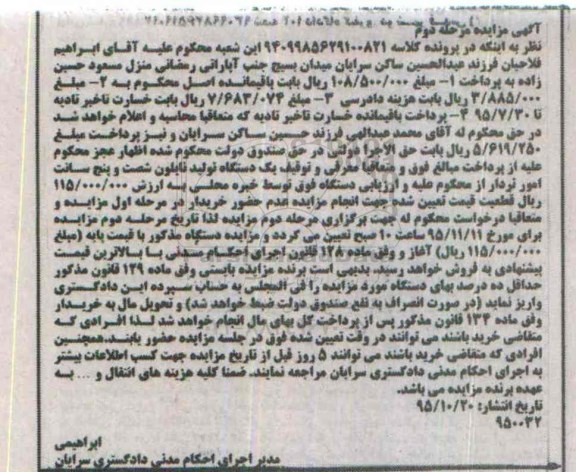 آگهی مزایده مرحله دوم
نظر به اینکه در پرونده کلاسه ۹۴۰۹۹۸۵۶۲۹۱۰۰۸۲۱ این شعبه محکوم علیه آقای ابراهیم
فلاحیان فرزند عبدالحسین ساکن سرایان میدان بسیج جنب آپاراتی رمضانی منزل مسعود حسین
زاده به پرداخت ۱- مبلغ ۱۰۸/۵۰۰/۰۰۰ ریال بابت باقیمانده اصل محکوم به ۲- مبلغ
۳/۸۸۵/۰۰۰ ریال بابت هزینه دادرسی ۳- مبلغ ۷/۶۸۳/۰۷۴ ریال بابت خسارت تاخیر تادیه
تا ۹۵/۷/۳۰ ۴- پرداخت باقیمانده خسارت تاخیر تادیه که متعاقبا محاسبه و اعلام خواهد شد
در حق محکوم له آقای محمد عبدالهی فرزند حسین ساکن سرایان و نیز پرداخت مبلغ
۵/۶۱۹/۲۵۰ ریال بابت حق الاجرا دولتی در حق صندوق دولت محکوم شده اظهار عجز محکوم
علیه از پرداخت مبالغ فوق و متعاقبا معرفی و توقیف یک دستگاه تولید نایلون شصت و پنج سانت
امور تردار از محکوم علیه و ارزیابی دستگاه فوق توسط خبره محلی به ارزش ۱۱۵/۰۰۰/۰۰۰
ریال قطعیت قیمت تعیین شده جهت انجام مزایده عدم حضور خریدار در مرحله اول مزایده و
متعاقبا درخواست محکوم له جهت برگزاری مرحله دوم مزایده لذا تاریخ مرحله دوم مزایده
برای مورخ ۹۵/۱۱/۱۱ ساعت ۱۰ صبح تعیین می گردد و مزایده دستگاه مذکور با قیمت پایه (مبلغ
۱۱۵/۰۰۰/۰۰۰ ریال) آغاز و وفق ماده ۱۲۸ قانون اجرای احکام مدنی با بالاترین قیمت
پیشنهادی به فروش خواهد رسید. بدیهی است برنده مزایده بایستی وفق ماده ۱۲۹ قانون مذکور
حداقل ده درصد بهای دستگاه مورد مزایده را فی المجلس به حساب سپرده این دادگستری
واریز نماید (در صورت انصراف به نفع صندوق دولت ضبط خواهد شد) و تحویل مال به خریدار
وفق ماده ۱۳۴ قانون مذکور پس از پرداخت کل بهای مال انجام خواهد شد لذا افرادی که
متقاضی خرید باشند می توانند در وقت تعیین شده فوق در جلسه مزایده حضور یابند. همچنین
افرادی که متقاضی خرید باشند می توانند ۵ روز قبل از تاریخ مزایده جهت کسب اطلاعات بیشتر
به اجرای احکام مدنی دادگستری سرایان مراجعه نمایند. ضمنا کلیه هزینه های انتقال و ... به
عهده برنده مزایده می باشد.
تاریخ انتشار: ۹۵/۱۰/۲۰
۹۵۰۰۳۲
ابراهیمی
مدیر اجرای احکام مدنی دادگستری سرایان